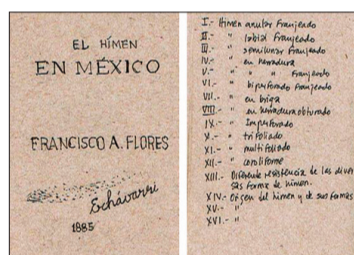 EL HÍMEN
EN MÉXICO
FRANCISCO A. FLORES
Echávarri
1885
I.- Himen anular Franjeado
II.- " labial Franjeado
III.- " semilunar Franjeado
IV.- " en herradura
V.- " " " Franjeado
VI.- " biperforado Franjeado
VII.- " en brida
VIII.- " en herradura obturado
IX.- " Imperforado
X.- " trifoliado
XI.- " multifoliado
XII.- " coroliforme
XIII.- Diferente resistencia de las diver
sas forma de himen.
XIV.- Origen del himen y de sus formas
XV.- "
XVI.- "